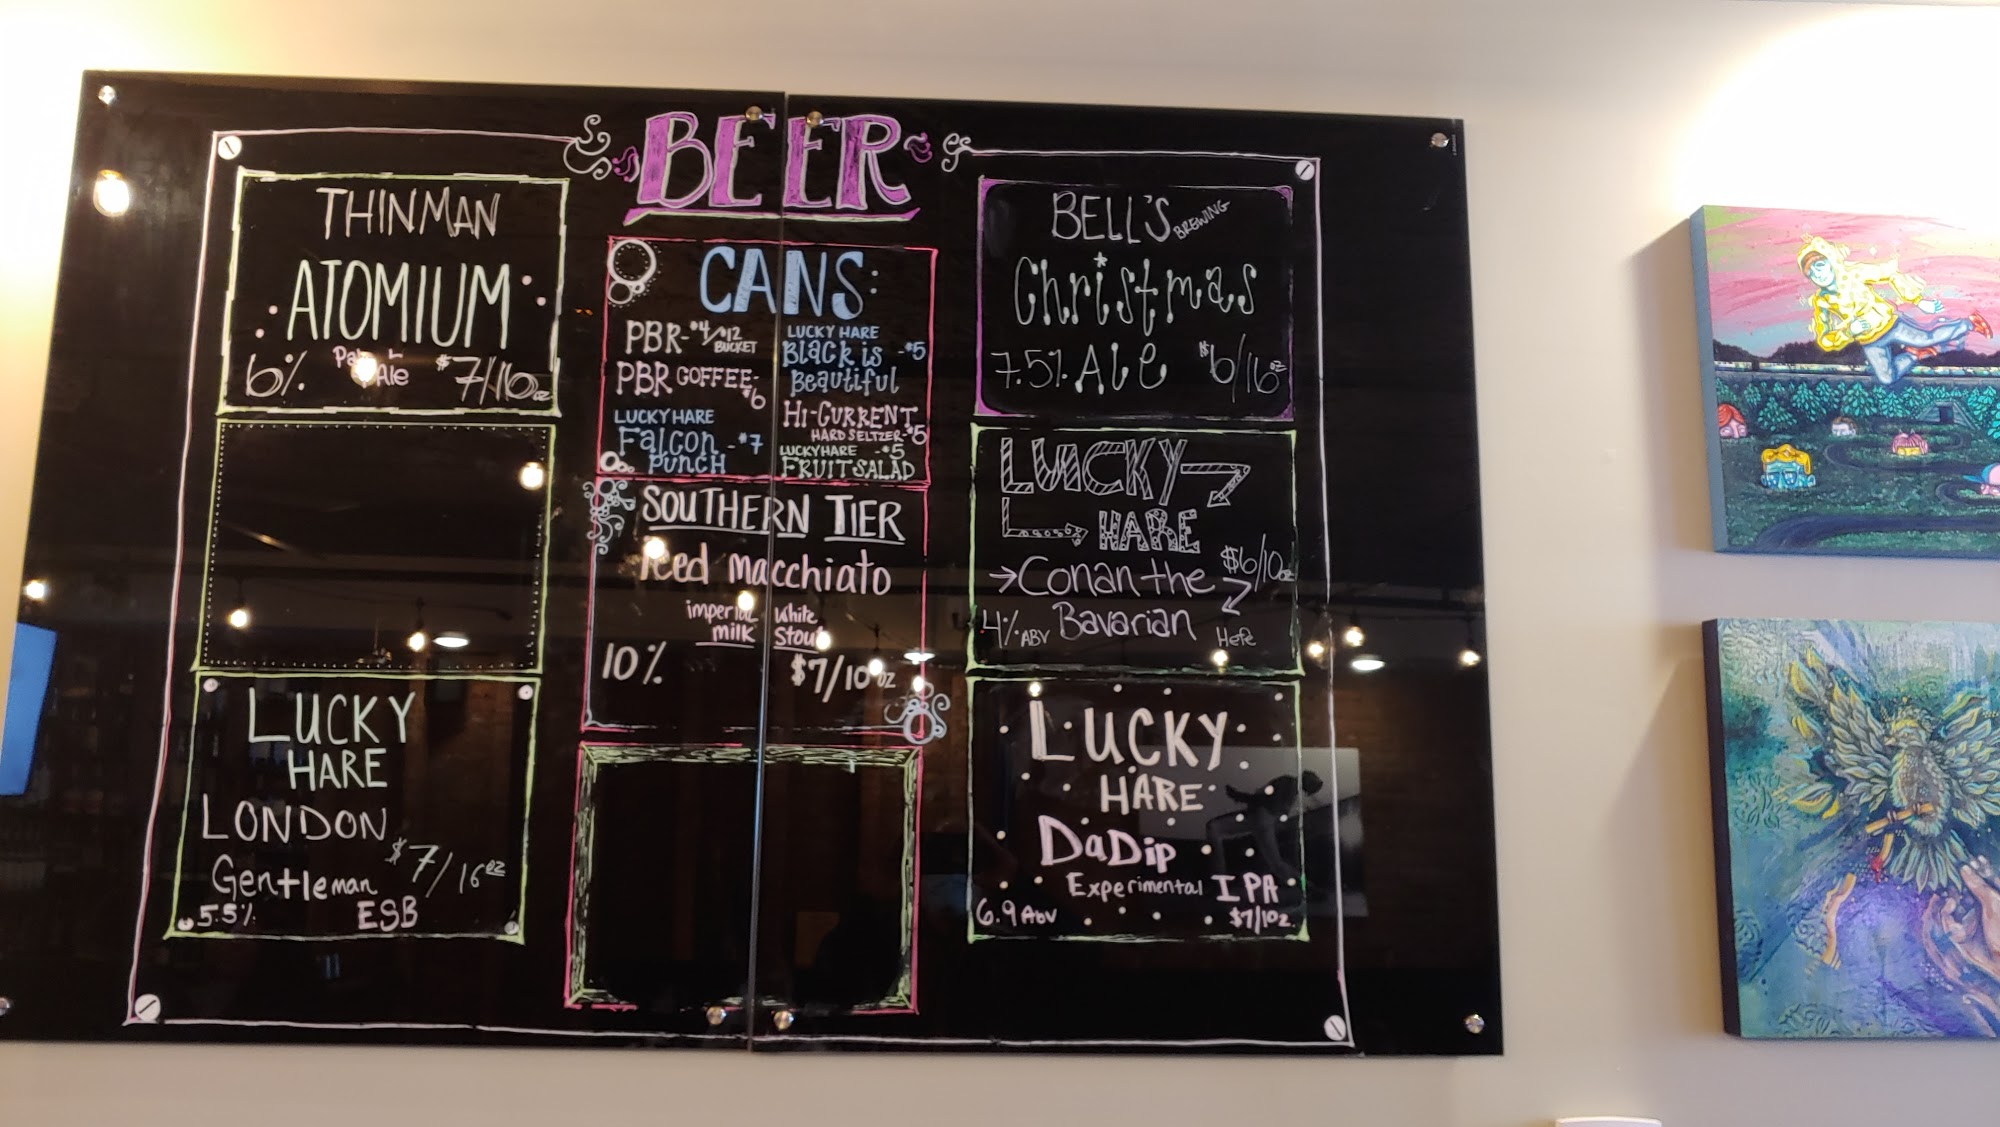 BEER
THINMAN
ATOMIUM
6% Pale Ale $7/16oz
LUCKY
HARE
LONDON
Gentleman $7/16oz
5.5% ESB
CANS:
PBR-$4/$12
BUCKET
PBR COFFEE-
$6
LUCKY HARE
Falcon -$7
Punch
LUCKY HARE
Black is -$5
Beautiful
HI-CURRENT
HARD SELTZER-$5
LUCKY HARE -$5
FRUIT SALAD
SOUTHERN TIER
Iced macchiato
imperial white
milk stout
10% $7/10oz
BELL'S BREWING
Christmas
7.5% Ale $6/16oz
LUCKY
HARE
$6/10oz
Conan the
4% ABV Bavarian Hefe
LUCKY
HARE
DaDip
Experimental IPA
6.9 ABV